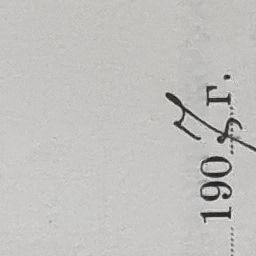 1907 г.